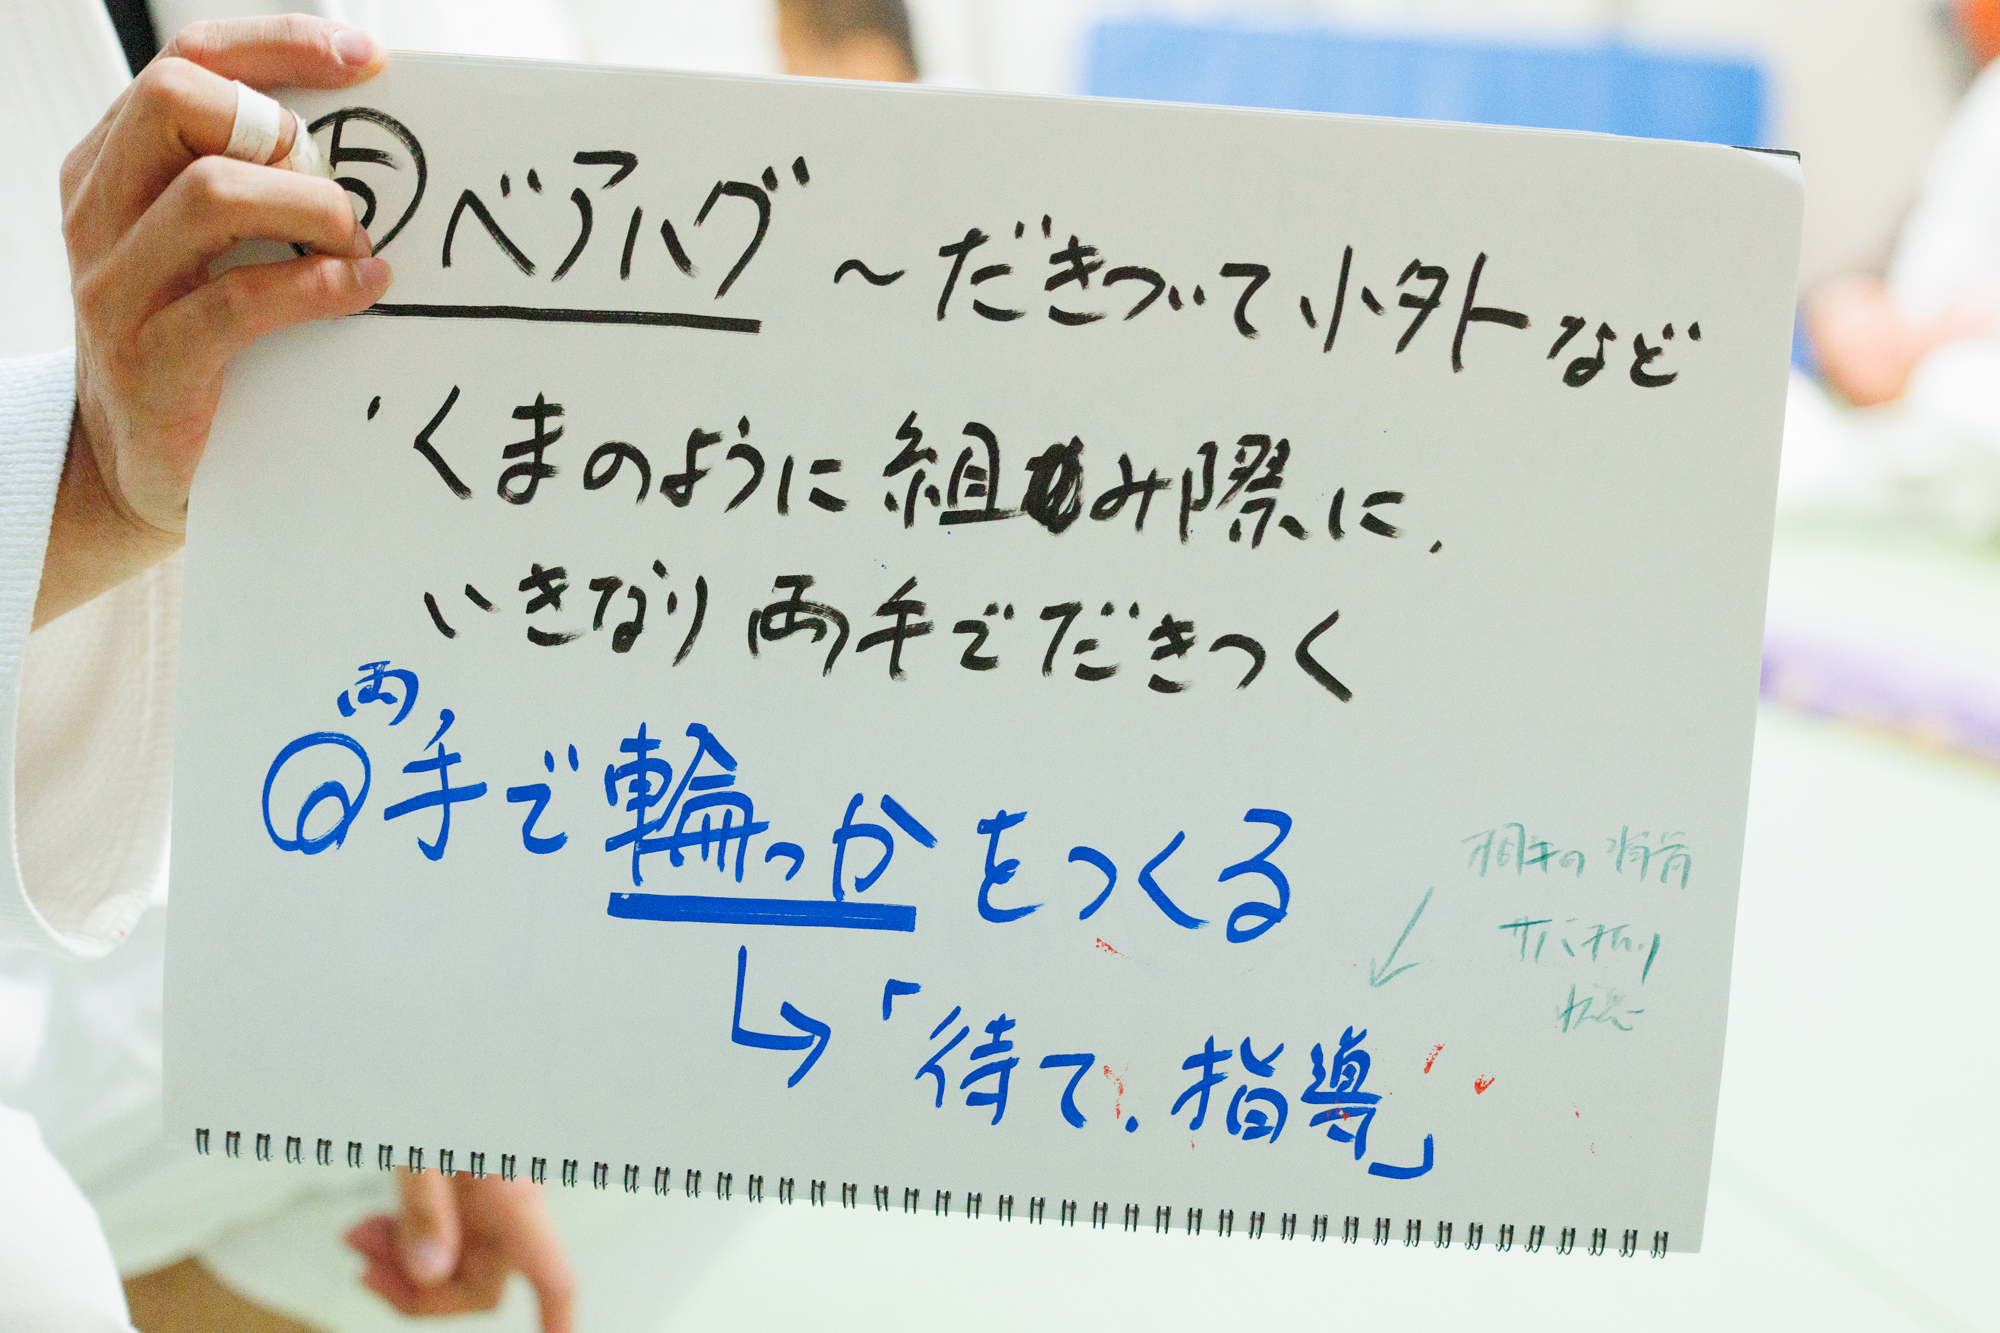 ⑤ベアハグ ～だきついて小外など
・くまのように組み際に、
いきなり両手でだきつく
◎両手で輪っかをつくる
相手の背骨
↳「待て、指導」